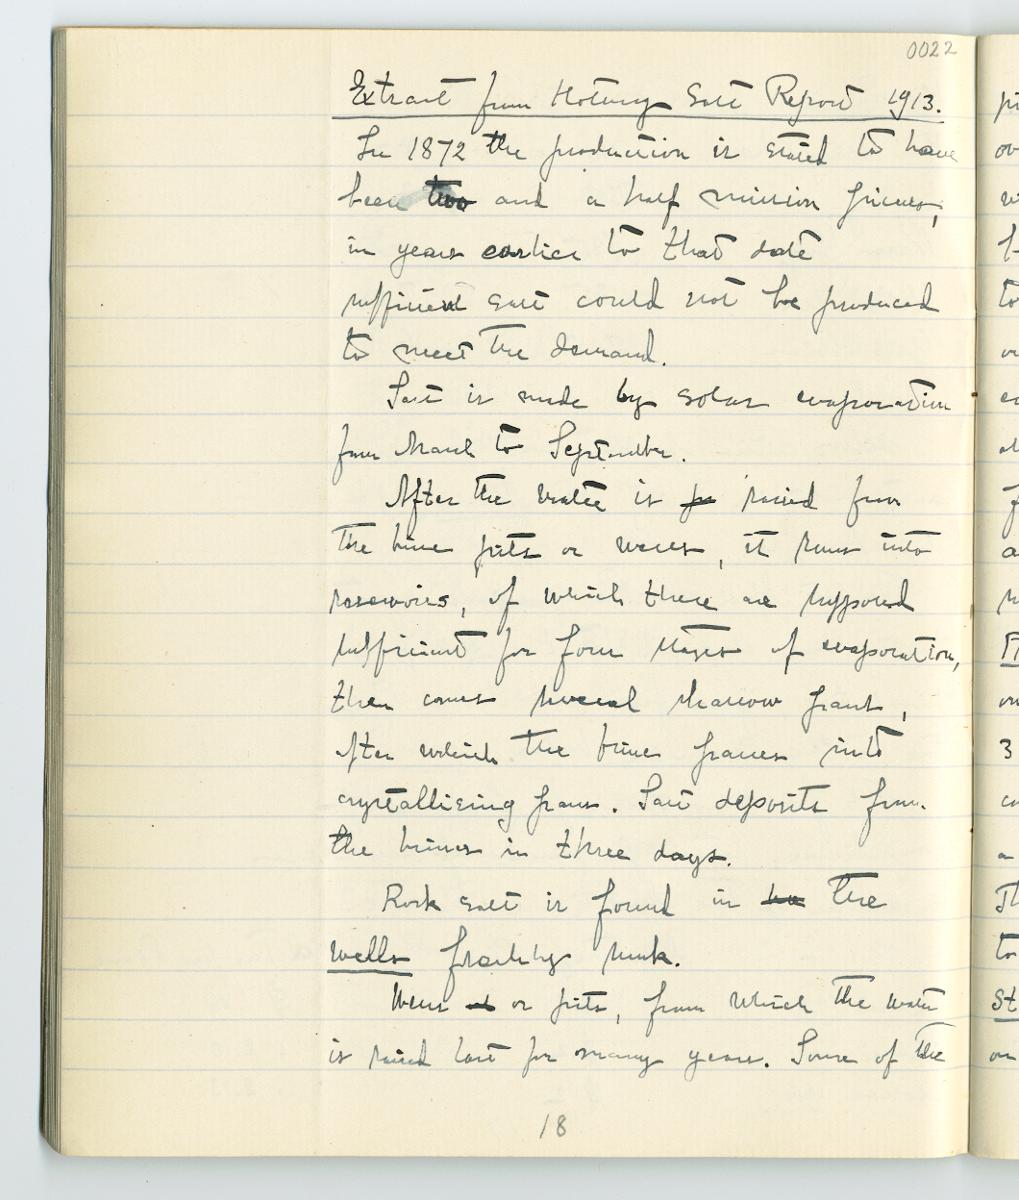 0022
Extract from Salt Report 1913.
In 1872 the production is stated to have
been two and a half million piculs,
in years earlier to that date
sufficient salt could not be produced
to meet the demand.
Salt is made by solar evaporation
from March to September.
After the water is raised from
the brine pits or wells, it runs into
reservoirs, of which there are supposed
sufficient for four stages of evaporation,
then comes several shallow pans,
after which the brine passes into
crystallising pans. Salt deposits from
the brines in three days.
Rock salt is found in the
wells freshly sunk.
Wells or pits, from which the water
is raised last for many years. Some of the
18